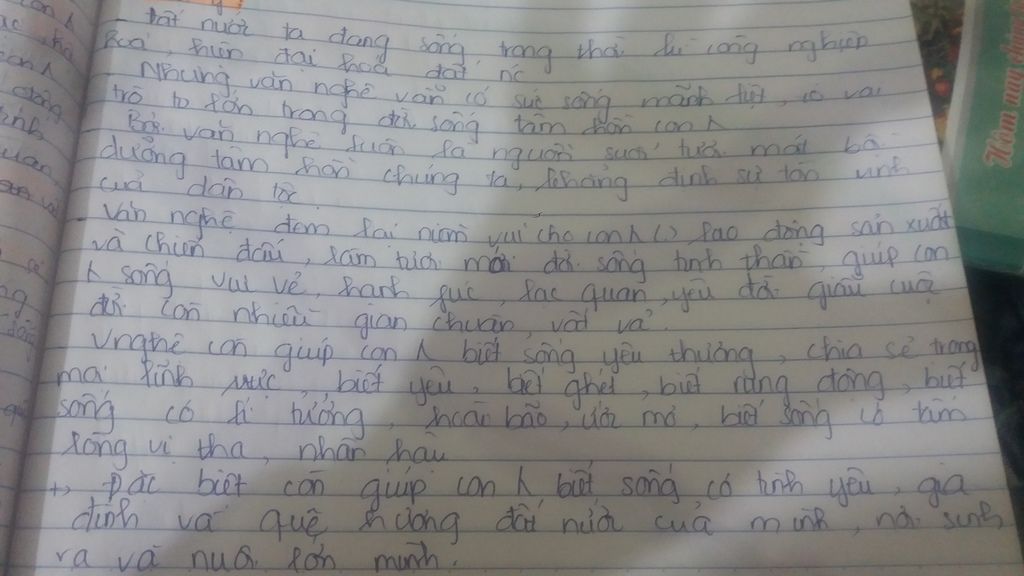 Đất nước ta đang sống trong thời kì công nghiệp
hoá, hiện đại hoá đất nc
Nhưng văn nghệ vẫn có sức sống mãnh liệt, có vai
trò to lớn trong đời sống tâm hồn con h
Bởi văn nghệ luôn là nguồn suối tươi mát bồi
dưỡng tâm hồn chúng ta, khẳng định sự tồn vinh
của dân tộc.
- Văn nghệ đem lại niềm vui cho con h () lao động sản xuất
và chiến đấu, làm tươi mới đời sống tinh thần, giúp con
h sống vui vẻ, hạnh fúc, lạc quan, yêu đời giẫu cuộc
đời còn nhiều gian chuân, vất vả.
Vnghệ còn giúp con h biết sống yêu thương, chia sẻ trong
mọi lĩnh vực, biết yêu, biết ghét, biết rung động, biết
sống có lí tưởng, hoài bão, ước mơ, biết sống có tấm
lòng vị tha, nhân hậu
+, Đặc biệt còn giúp con h biết sống có tình yêu, gia
đình và quê hương đất nước của mình, nơi sinh
ra và nuôi lớn mình.